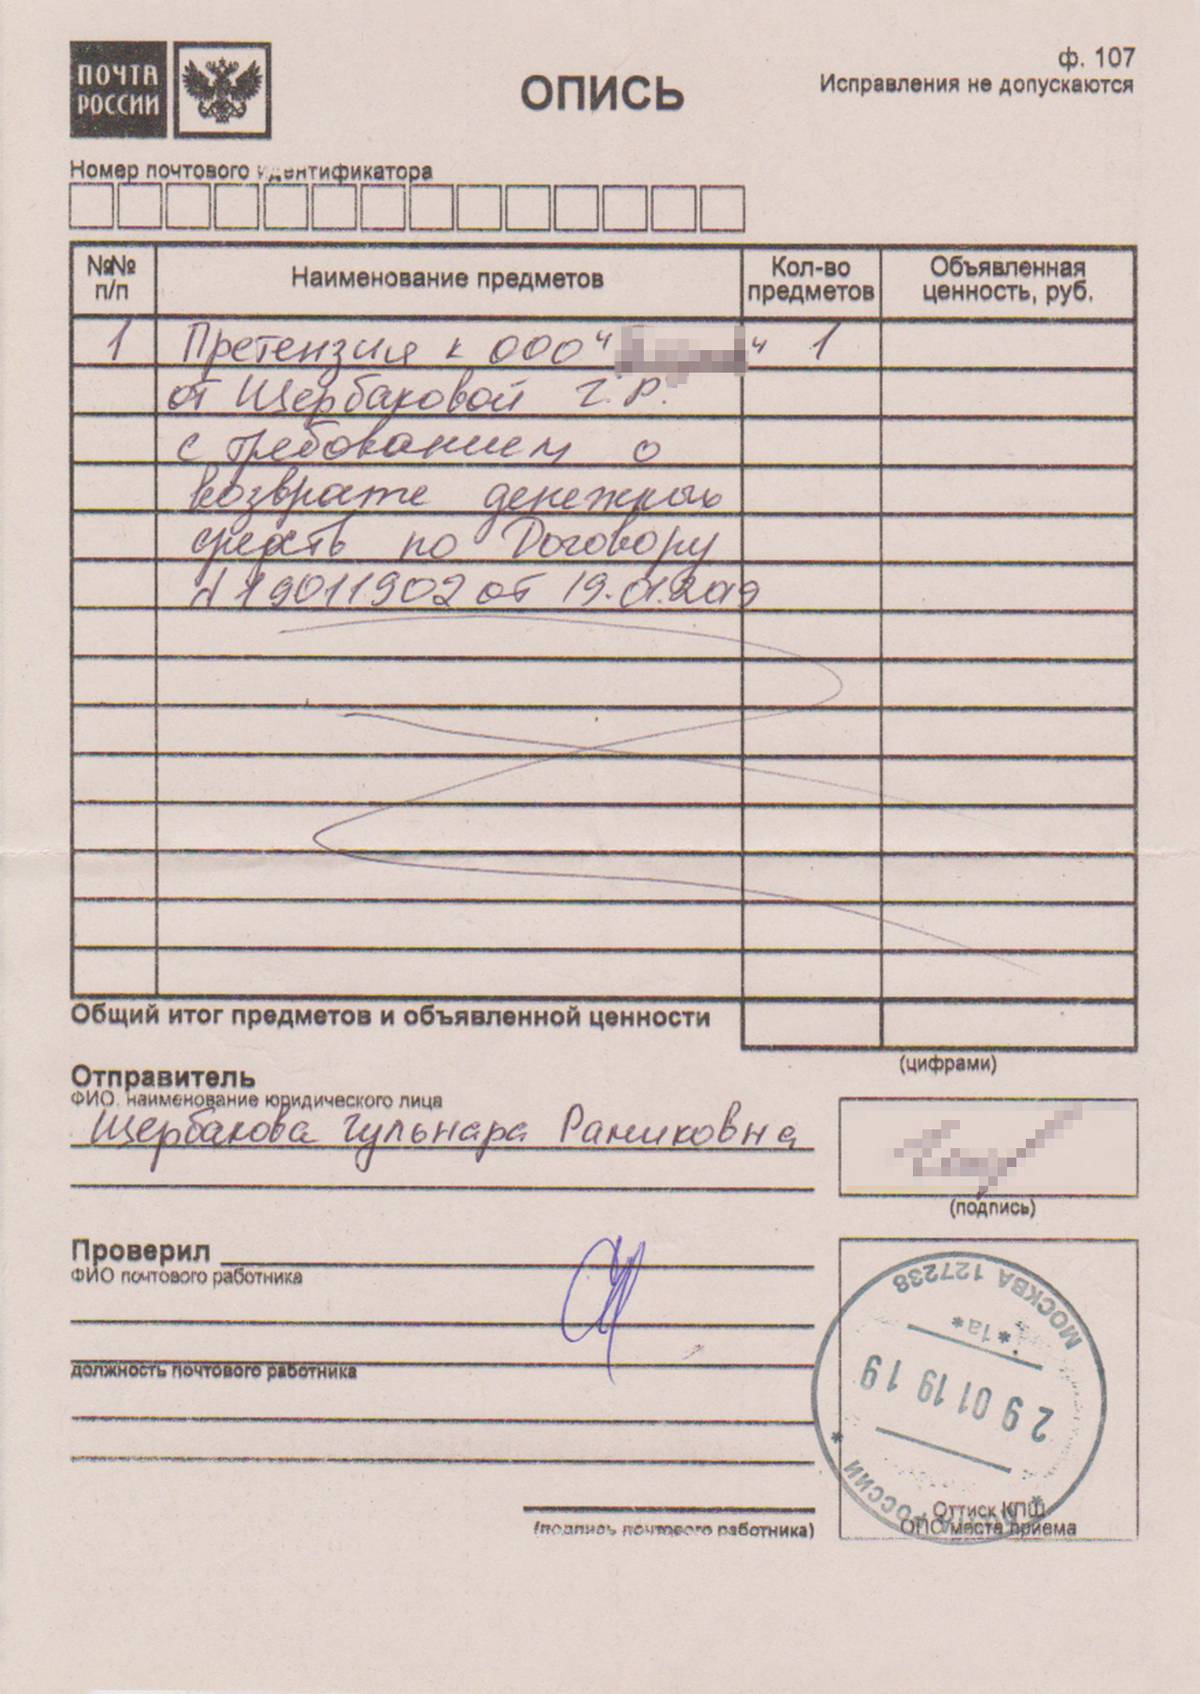 ПОЧТА
РОССИИ
ОПИСЬ
ф. 107
Исправления не допускаются
Номер почтового идентификатора
№№ п/п
Наименование предметов
Кол-во предметов
Объявленная ценность, руб.
1 Претензия к ООО " " 1
от Щербаковой Г.Р.
с требованием о
возврате денежных
средств по Договору
N 19011902 от 19.01.2019
Общий итог предметов и объявленной ценности
(цифрами)
Отправитель
ФИО, наименование юридического лица
Щербакова Гульнара Рамиковна
(подпись)
Проверил
ФИО почтового работника
должность почтового работника
(подпись почтового работника)
МОСКВА 127238
*1а*
29 01 19 19
* ПОЧТА РОССИИ *
Оттиск КПШ
ОПС места приема